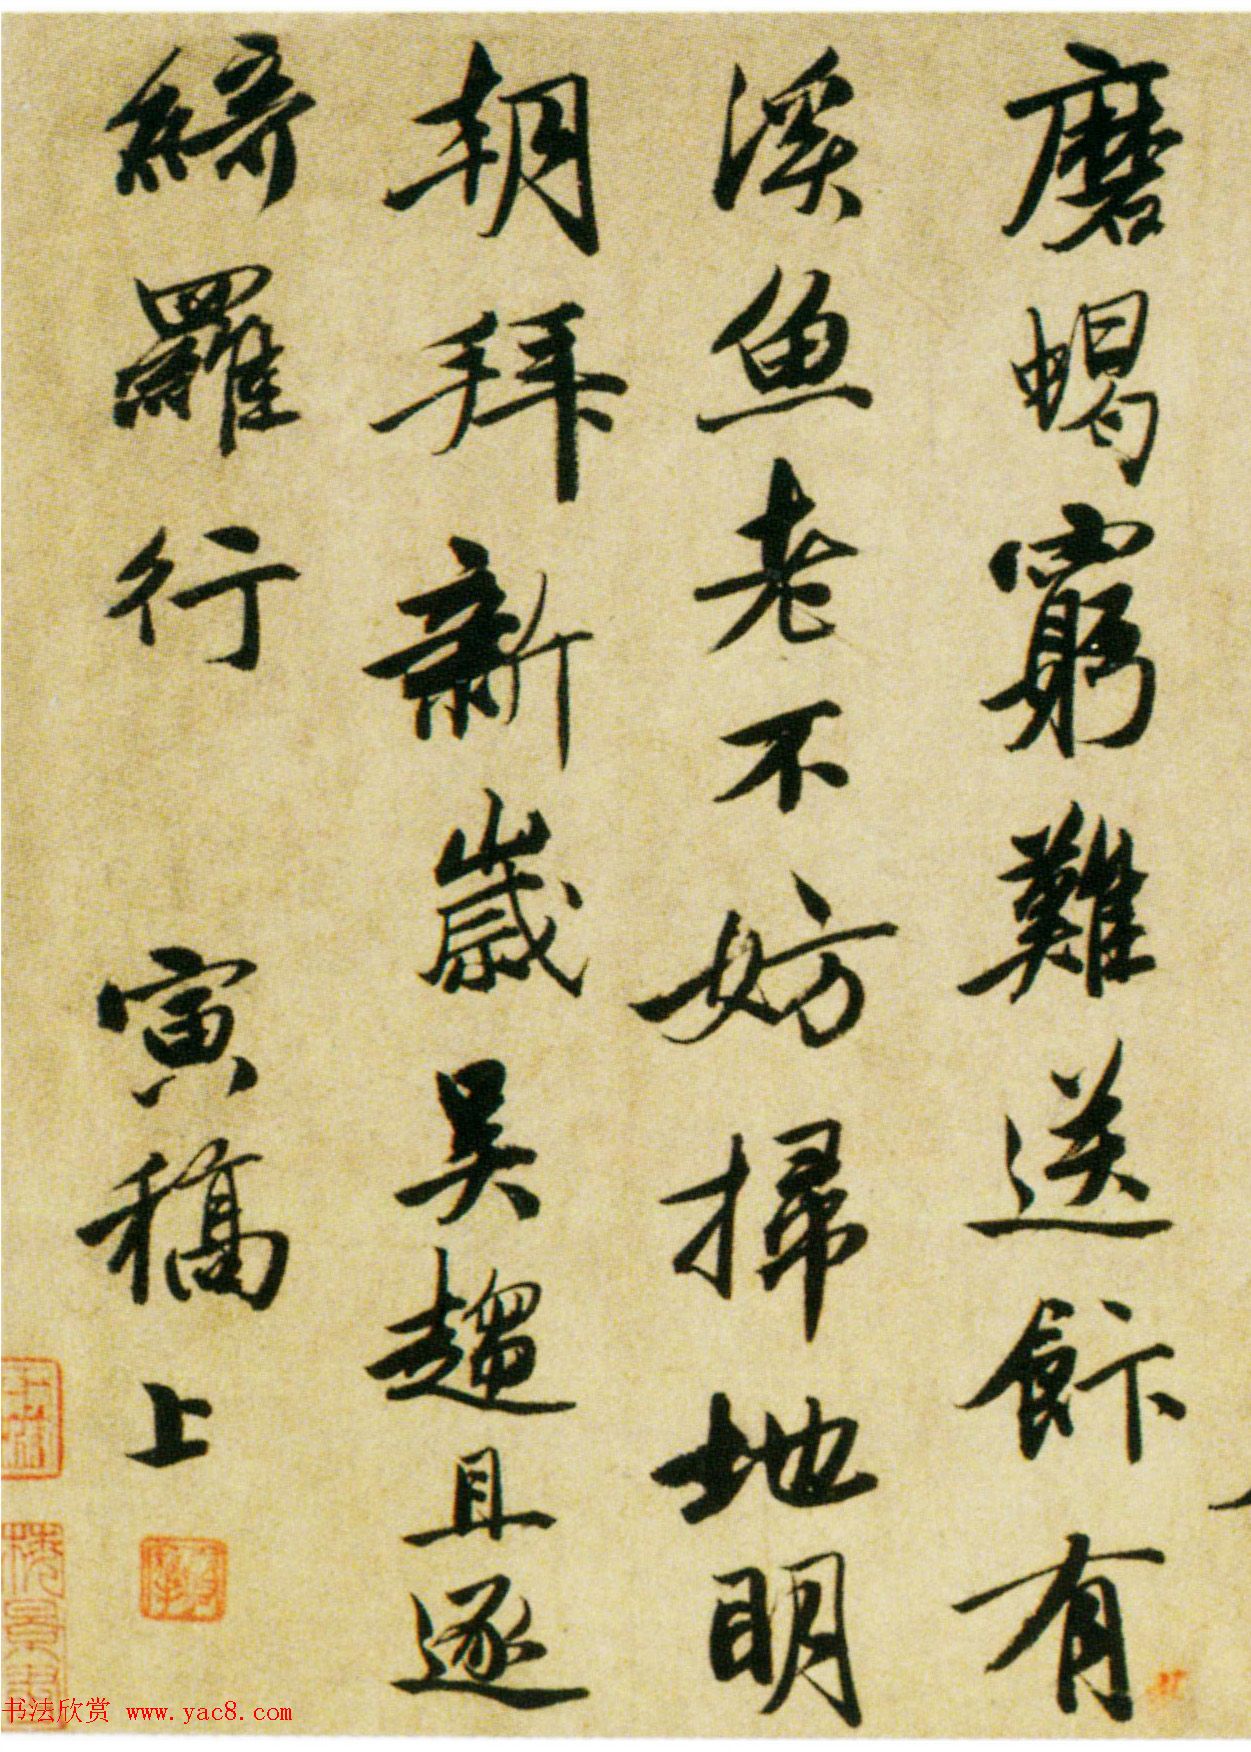 磨蝎窮難送飰有
溪魚老不妨掃地明
朝拜新歲吴趨且逐
綺羅行
寅稿上
书法欣赏 www.yac8.com